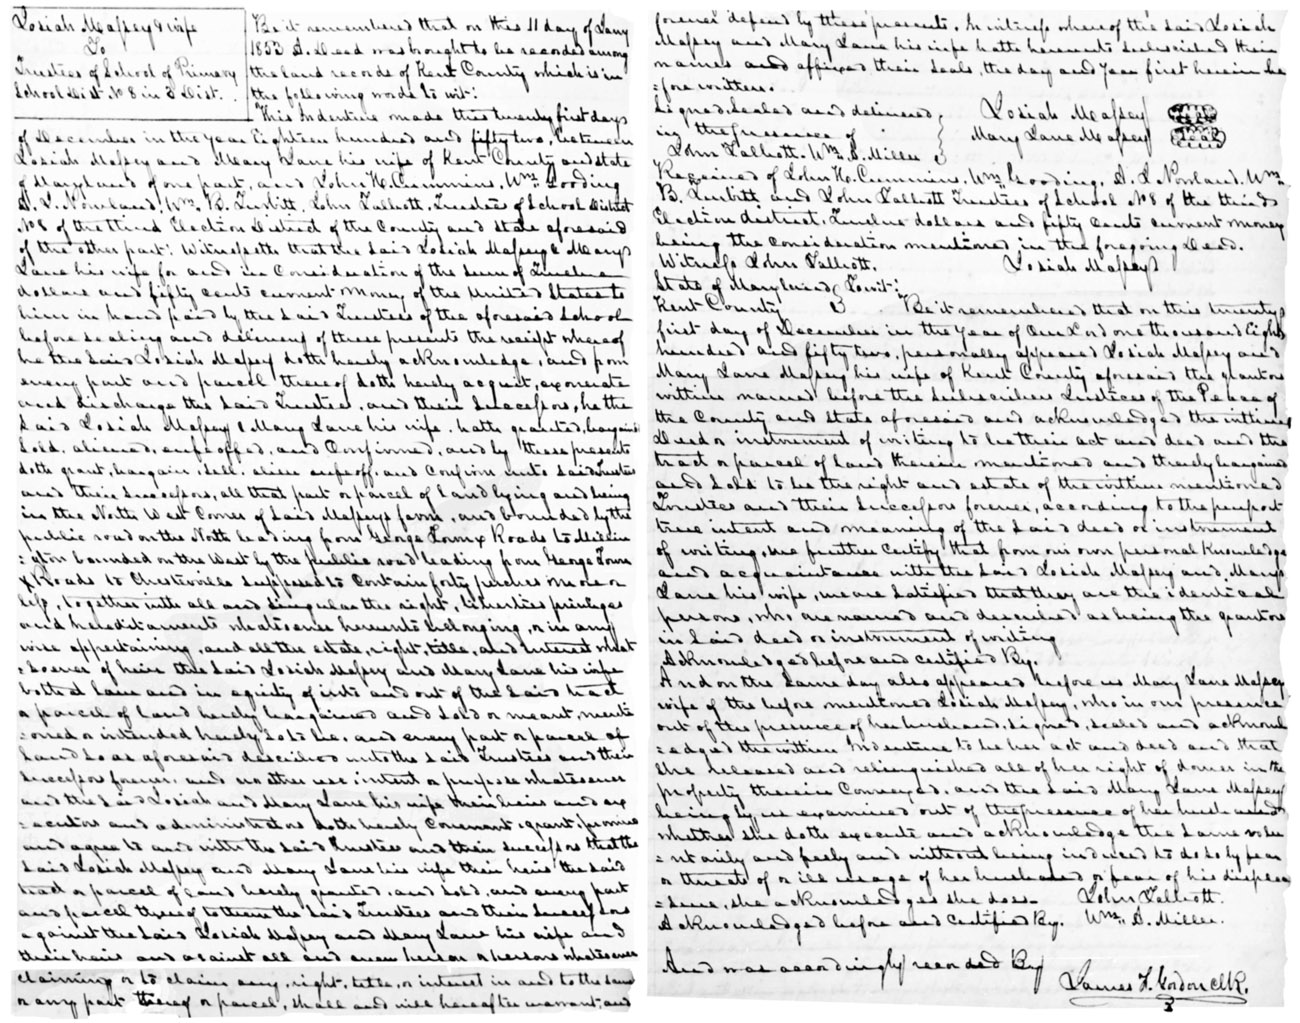 Josiah Massey & wife
To
Trustees of School of Primary
School Dist. No 8 in 3 Dist.
Be it remembered that on this 11 day of Jany
1853 A Deed was brought to be recorded among
the land records of Kent County which is in
the following words to wit:
This Indenture made this twenty first days
of December in the year Eighteen hundred and fifty two, between
Josiah Massey and Mary Jane his wife of Kent County and state
of Maryland of one part, and John H. Cummins, Wm. Gooding
S. L. Nowland, Wm. B. Tilbitt, John Talliott, Trustees of School District
No 8 of the third Election District of the County and state aforesaid
of the other part: Witnesseth that the said Josiah Massey & Mary
Jane his wife for and in Consideration of the sum of Twelve
dollars and fifty cents current money of the United States to
him in hand paid by the said Trustees of the aforesaid School
before sealing and delivery of these presents the receipt whereof
he the said Josiah Massey doth hereby acknowledge, and from
every part and parcel thereof doth hereby acquit, exonerate
and discharge the said Trustees, and their Successors, he the
said Josiah Massey & Mary Jane his wife, hath granted, bargained
sold, aliened, enfeoffed, and Confirmed, and by these presents
doth grant, bargain, sell, alien enfeoff, and Confirm unto said Trustees
and their Successors, all that part or parcel of land lying and being
in the North West Corner of said Masseys farm, and bounded by the
public road on the North leading from George Town X Roads to Millin
=gton bounded on the West by the public road leading from George Town
X Roads to Chesterville supposed to Contain forty perches more or
less, together with all and singular the right, liberties privileges
and hereditaments whatsoever hereunto belonging, or in any
wise appertaining, and all the estate, right, title, and interest what
=soever of him the said Josiah Massey and Mary Jane his wife
both at law and in equity of into and out of the said tract
or parcel of land hereby bargained and sold or meant, menti
=oned or intended hereby so to be, and every part or parcel of
land so as aforesaid described unto the said Trustees and their
Successors forever, and no other use intent or purpose whatsoever
and the said Josiah and Mary Jane his wife their heirs and ex
=ecutors and administrators doth hereby Covenant, grant, promise
and agree to and with the said Trustees and their successors that the
said Josiah Massey and Mary Jane his wife their heirs the said
tract or parcel of land hereby granted, and sold, and every part
and parcel thereof to them the said Trustees and their Successors
against the said Josiah Massey and Mary Jane his wife and
their heirs and against all and every person or persons whatsoever
claiming or to claim any, right, title, or interest in and to the same
or any part thereof or parcel, shall and will hereafter warrant, and
forever defend by these presents. In witness whereof the said Josiah
Massey and Mary Jane his wife hath hereunto subscribed their
names and affixed their seals, the day and year first herein be
=fore written.
Signed sealed and delivered
in the presence of
John Talliott. Wm. S. Miller
Josiah Massey
Mary Jane Massey
Received of John H. Cummins, Wm. Gooding, S. L. Nowland, Wm.
B. Tilbitt and John Talliott Trustees of School No 8 of the third
Election district, Twelve dollars and fifty cents current money
being the consideration mentioned in the foregoing Deed.
Witness John Talliott. Josiah Massey
State of Maryland
Kent County } Towit:
Be it remembered that on this twenty
first day of December in the year of Our Lord one thousand Eight
hundred and fifty two, personally appeared Josiah Massey and
Mary Jane Massey his wife of Kent County aforesaid the grantors
within named before the Subscribers Justices of the Peace of
the County and state aforesaid and acknowledged the within
Deed or instrument of writing to be their act and deed and the
tract or parcel of land therein mentioned and thereby bargained
and sold to be the right and estate of the within mentioned
Trustees and their Successors forever, according to the purport
true intent and meaning of the said deed or instrument
of writing, we further certify that from our own personal knowledge
and acquaintance with the said Josiah Massey and Mary
Jane his wife, we are satisfied that they are the identical
persons, who are named and described as being the grantors
in said deed or instrument of writing
Acknowledged before and certified By.
And on the same day also appeared before us Mary Jane Massey
wife of the before mentioned Josiah Massey, who in our presence
out of the presence of her husband, signed, sealed and acknowl
=edged the within Indenture to be her act and deed and that
she released and relinquished all of her right of dower in the
property therein Conveyed, and the said Mary Jane Massey
being by us examined out of the presence of her husband
whether she doth execute and acknowledge the same volu
=ntarily and freely and without being induced to do so by fear
or threats of or ill usage of her husband or fear of his displea
=sure, she acknowledges she does.
Acknowledged before and certified By.
John Talliott.
Wm. S. Miller.
And was accordingly recorded By
James F. Gordon Clk.